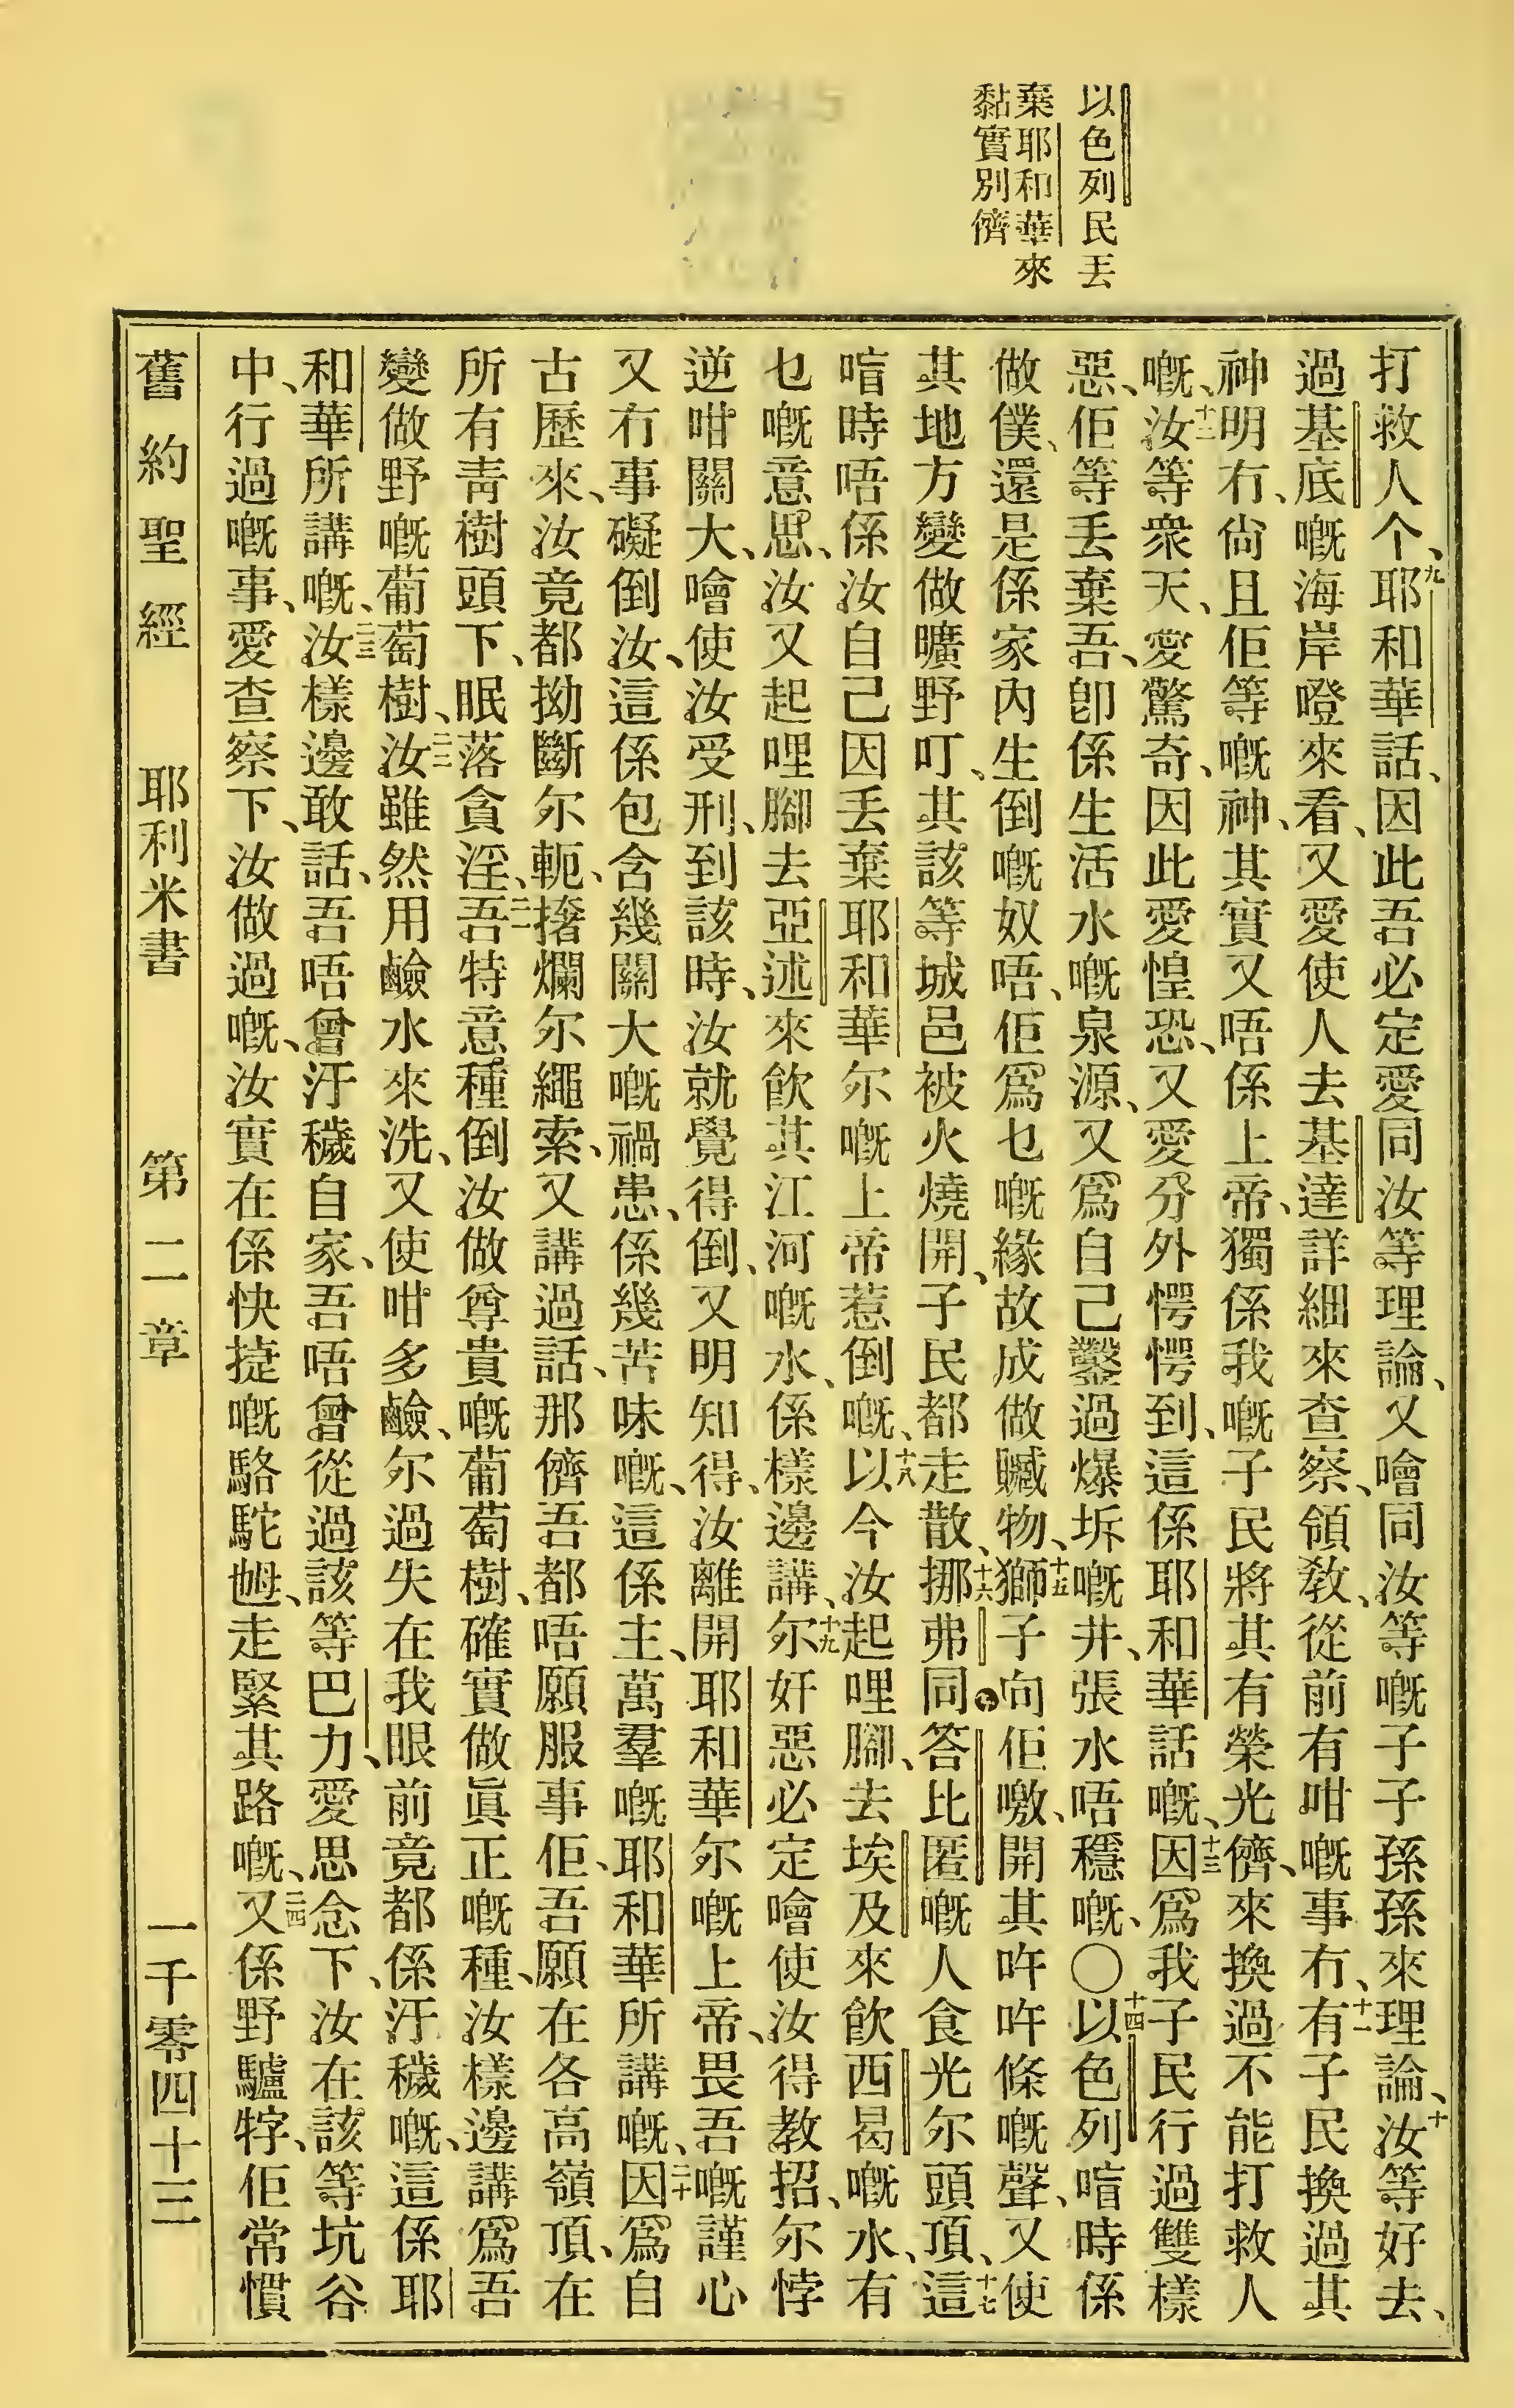 以色列民丟
棄耶和華來
黏實別儕
打救人个、九耶和華話、因此吾必定愛同汝等理論、又噲同汝等嘅子子孫孫來理論、十汝等好去、
過基底嘅海岸噔來看、又愛使人去基達詳細來查察、領教、從前有咁嘅事冇、十一有子民換過其
神明冇、尙且佢等嘅神、其實又唔係上帝、獨係我嘅子民將其有榮光儕、來換過不能打救人
嘅、十二汝等衆天、愛驚奇、因此愛惶恐、又愛分外愕愕到、這係耶和華話嘅、十三因爲我子民行過雙樣
惡、佢等丢棄吾、卽係生活水嘅泉源、又爲自己鑿過爆坼嘅井、張水唔穩嘅、〇十四以色列唷時係
做僕、還是係家內生倒嘅奴唔、佢爲乜嘅緣故成做贓物、十五獅子向佢噭、開其吘吘條嘅聲、又使
其地方變做曠野叮、其該等城邑被火燒開、子民都走散、十六挪弗同答比匿嘅人食光尔頭頂、十七這
唷時唔係汝自己因丢棄耶和華尔嘅上帝惹倒嘅、十八以今汝起哩腳、去埃及來飮西曷嘅水、有
乜嘅意思、汝又起哩腳去亞述來飮其江河嘅水、係樣邊講、十九尔奸惡必定噲使汝得教招、尔悖
逆咁關大、噲使汝受刑、到該時、汝就覺得倒、又明知得、汝離開耶和華尔嘅上帝、畏吾嘅謹心
又冇事礙倒汝、這係包含幾關大嘅禍患、係幾苦味嘅、這係主、萬羣嘅耶和華所講嘅、二十因爲自
古歷來、汝竟都拗斷尔軛、撦爛尔繩索、又講過話、那儕吾都唔願服事佢、吾願在各高嶺頂、在
所有靑樹頭下、眠落貪淫、二一吾特意種倒汝做尊貴嘅葡萄樹、確實做眞正嘅種、汝樣邊講爲吾
變做野嘅葡萄樹、二二汝雖然用鹼水來洗、又使咁多鹼、尔過失在我眼前竟都係汙穢嘅、這係耶
和華所講嘅、二三汝樣邊敢話、吾唔曾汙穢自家、吾唔曾從過該等巴力、愛思念下、汝在該等坑谷
中、行過嘅事、愛查察下、汝做過嘅、汝實在係快㨗嘅駱駝乸、走緊其路嘅、二四又係野驢牸、佢常慣
舊約聖經 耶利米書 第二章 一千零四十三